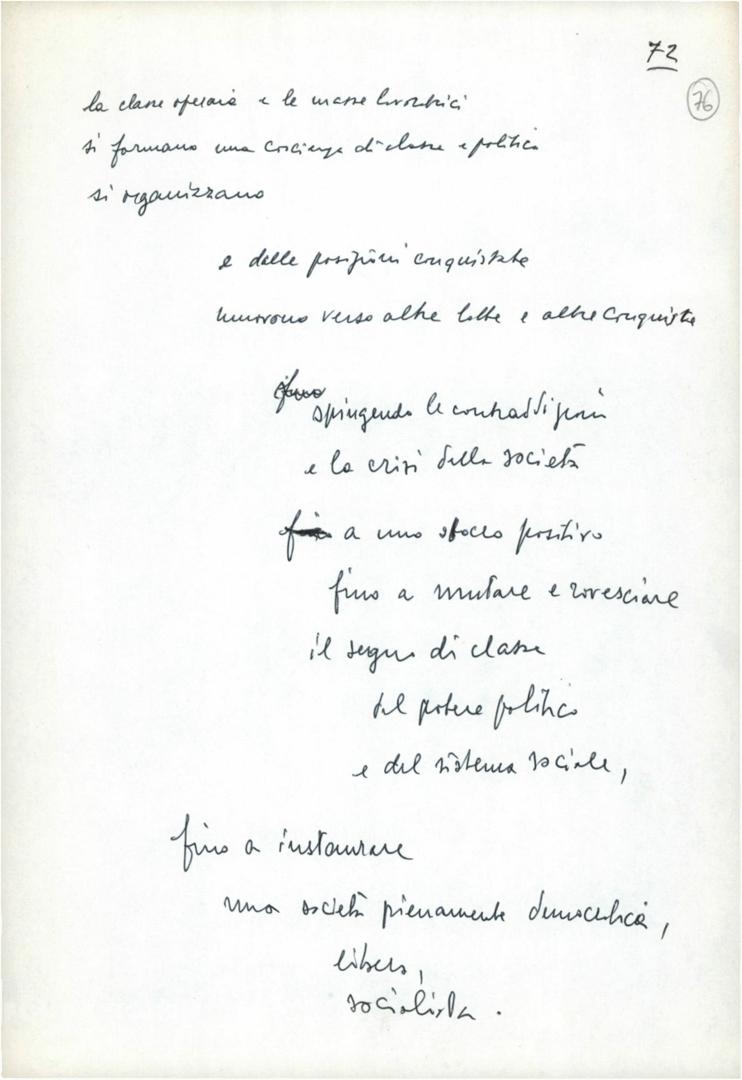 72
76
la classe operaia e le masse lavoratrici
si formano una coscienza di classe e politica
si organizzano
e dalle posizioni conquistate
muovono verso altre lotte e altre conquiste
fino
spingendo le contraddizioni
e la crisi della società
fino a uno sbocco positivo
fino a mutare e rovesciare
il segno di classe
del potere politico
e del sistema sociale,
fino a instaurare
una società pienamente democratica,
libera,
socialista.